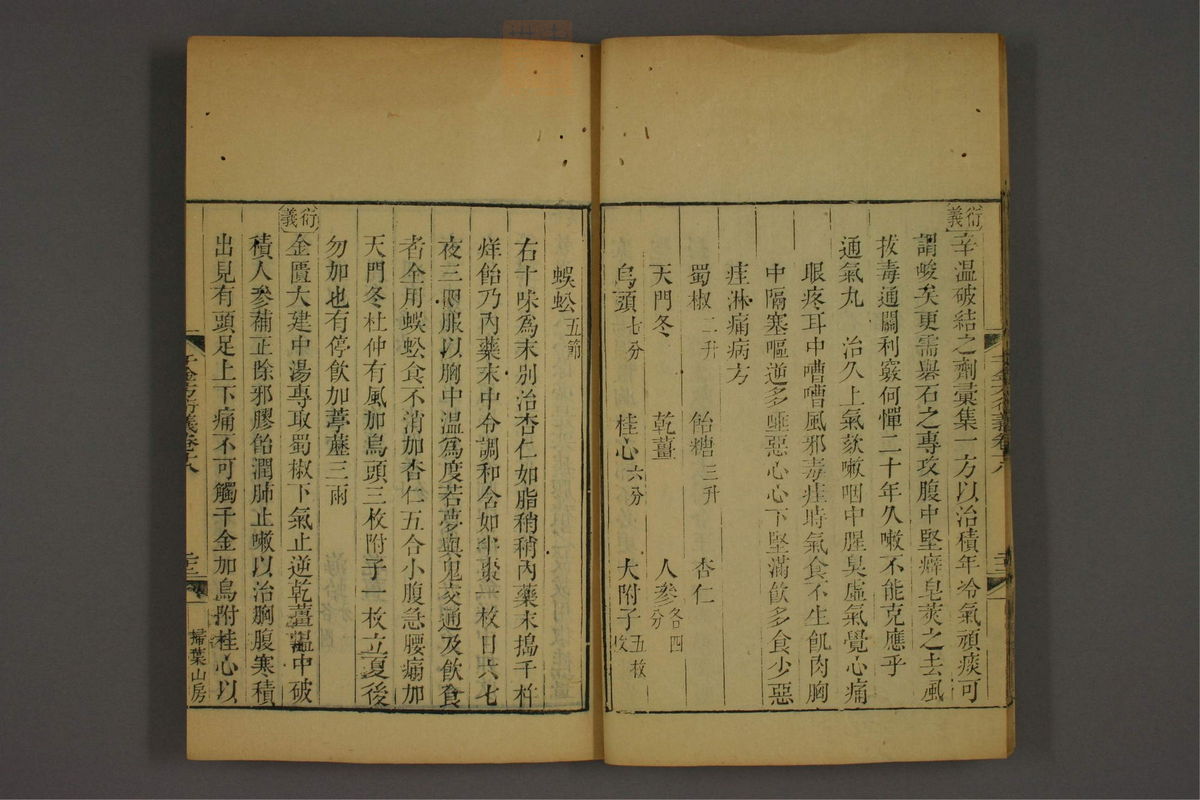 衍義
辛溫破結之劑彙集一方以治積年冷氣頑痰可
謂峻矣更需礜石之專攻腹中堅癖皂莢之去風
拔毒通關利竅何憚二十年久嗽不能克應乎
通氣丸 治久上氣欬嗽咽中腥臭虛氣覺心痛
眼疼耳中嘈嘈風邪毒疰時氣食不生飢肉胸
中隔塞嘔逆多唾惡心心下堅滿飲多食少惡
疰淋痛病方
蜀椒二升 飴糖三升 杏仁
天門冬 乾薑 人參各四分
烏頭七分 桂心六分 大附子五枚
蜈蚣五節
右十味為末別治杏仁如脂稍稍內藥末搗千杵
烊飴乃內藥末中令調和含如半棗一枚日六七
夜三四服以胸中溫為度若夢與鬼交通及飲食
者全用蜈蚣食不消加杏仁五合小腹急腰痛加
天門冬杜仲有風加烏頭三枚附子一枚立夏後
勿加也有停飲加葶藶三兩
衍義
金匱大建中湯專取蜀椒下氣止逆乾薑溫中破
積人參補正除邪膠飴潤肺止嗽以治胸腹寒積
出見有頭足上下痛不可觸千金加烏附桂心以
千金方衍義卷十八
掃葉山房